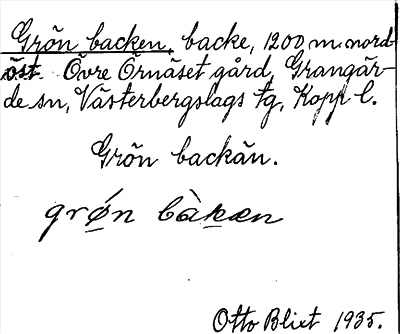 Grön backen, backe, 1200 m. nord-
öst. Övre Örnäset gård, Grangär-
de sn, Västerbergslags tg, Kopp l.
Grön backän.
grǿn bàkæn
Otto Blixt 1935.